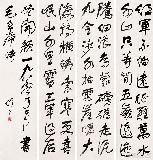 紅軍不怕遠征難萬水
千山只等閒五嶺逶迤
騰細浪烏蒙磅礴走泥
丸金沙水拍雲崖暖大
渡橋橫鐵索寒更喜岷
山千里雪三軍過後盡
開顏一九八
毛主席詩